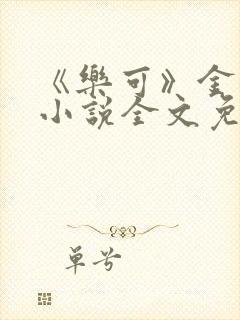 《樂可》金
小說全文免
单兮